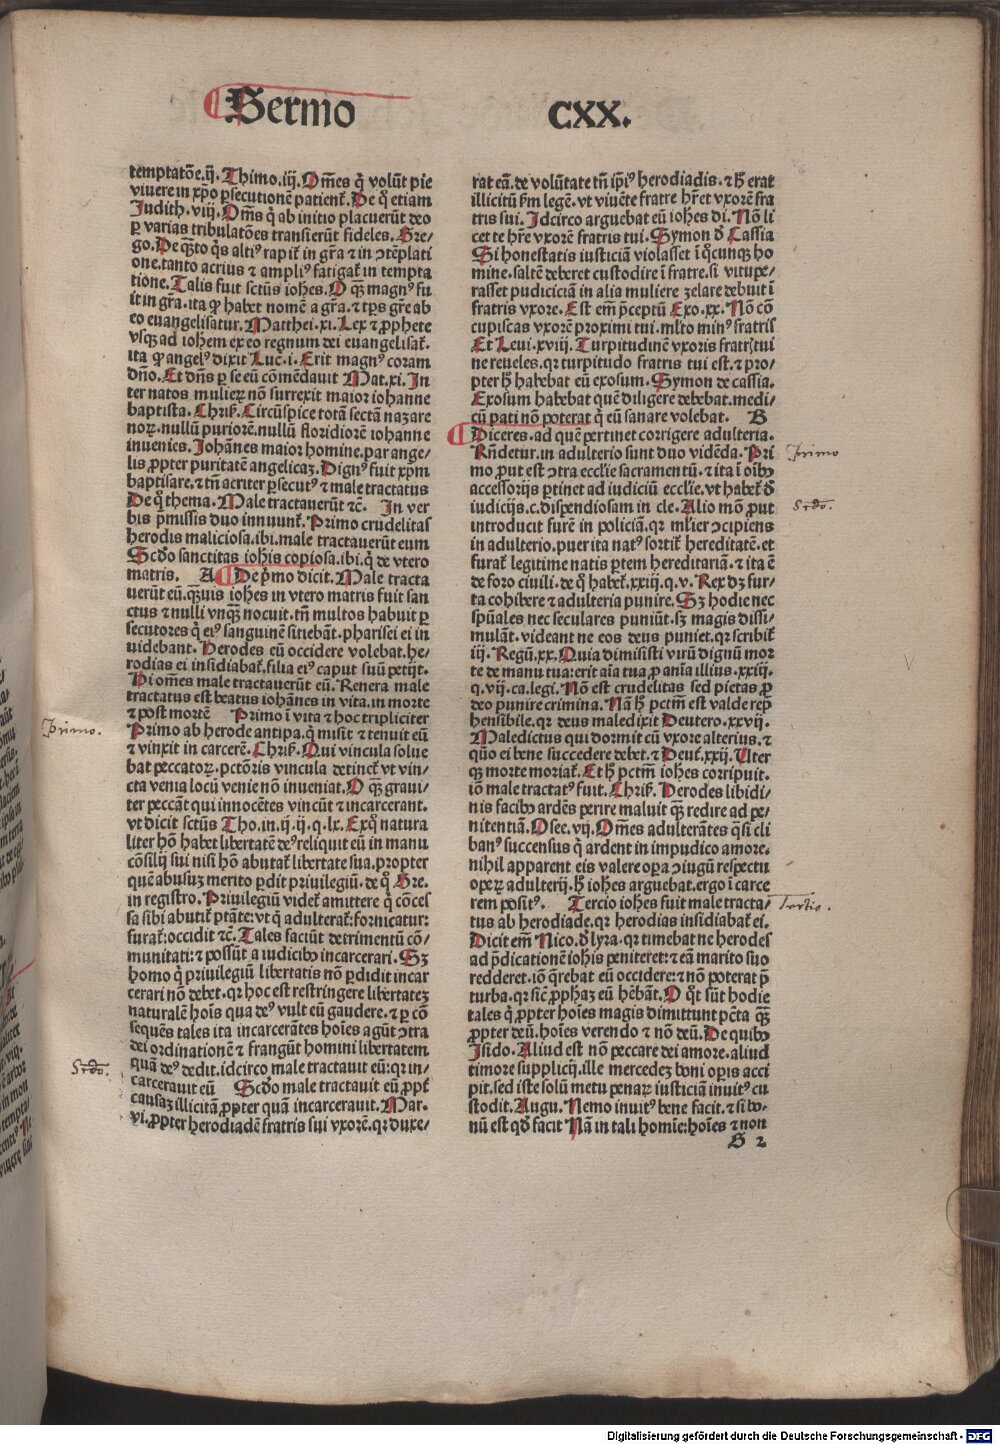 Sermo CXX.
temptatõe.ij. Thimo.iij. Om̃es q̇ volũt pie
viuere in xp̃o ꝑsecutionẽ patienť. De q̊ etiam
Judith.viij. Om̃s q̇ ab initio placuerũt deo
ꝑ varias tribulatões transierũt fideles. Gre⸗
go. De q̃sto q̇s altiꝰ rapiť in gr̃a ⁊ in ↄtẽplati
one.tanto acrius ⁊ ampliꝰ fatigať in tempta
tione. Talis fuit sctũs iohes. O q̃ꝫ magnꝰ fu
it in gr̃a.ita ꝙ habet nomẽ a gr̃a.⁊ tꝑs gr̃e ab
eo euangelisatur. Matthei.xi. Lex ⁊ ꝓphete
vsqꝫ ad iohem ex eo regnum dei euangelisať.
ita ꝙ angelꝰ dixit Luč.i. Erit magnꝰ coram
dño. Et dñs ꝑ se eũ cõmẽdauit Mat.xi. In
ter natos mulieꝝ nõ surrexit maior iohanne
baptista. Chriš. Circũspice totã sectã nazare
noꝝ.nullũ puriorẽ.nullũ floridiorẽ iohanne
inuenies. Johãnes maior homine.par ange⸗
lis ꝓpter puritatẽ angelicaꝫ. Dignꝰ fuit xp̃m
baptisare.⁊ tñ acriter ꝑsecutꝰ ⁊ male tractatus
De q̊ thema. Male tractauerũt ⁊č. In ver
bis p̃missis duo innuunť. Primo crudelitas
herodis maliciosa.ibi.male tractauerũt eum
Scd̃o sanctitas iohis copiosa.ibi.q̇ de vtero
matris. A De p̃mo dicit. Male tracta
uerũt eũ.q̃uis iohes in vtero matris fuit san
ctus ⁊ nulli vnq̃ꝫ nocuit.tñ multos habuit ꝑ
secutores q̇ eiꝰ sanguinẽ sitiebãt.pharisei ei in
uidebant. Herodes eũ occidere volebat.he⸗
rodias ei insidiabať.filia eiꝰ caput suũ petijt.
Hi om̃es male tractauerũt eũ. Renera male
tractatus est beatus iohãnes in vita.in morte
⁊ post mortẽ Primo ĩ vita ⁊ hoc tripliciter
Primo ab herode antipa.q̇ misit ⁊ tenuit eũ
⁊ vinxit in carcerẽ. Chriš. Qui vincula solue
bat peccatoꝝ.pctõris vincula detinet̃ vt vin⸗
cta venia locũ venie nõ inueniat. O q̃ꝫ graui⸗
ter peccãt qui innocẽtes vinciũt ⁊ incarcerant.
vt dicit sctũs Tho.in.ij.ij.q.lx. Exq̊ natura
liter hõ habet libertatẽ deꝰ reliquit eũ in manu
cõsilij sui nisi hõ abutať libertate sua.propter
quẽ abusuꝫ merito ꝑdit priuilegiũ.de q̊ Gre.
in registro. Priuilegiũ videť amittere q̇ cõces
sa sibi abutiť ptãte:vt q̇ adulterať:fornicatur:
furať:occidit ⁊č. Tales faciũt detrimentũ cõ⸗
munitati:⁊ possũt a iudicibꝰ incarcerari. Sꝫ
homo q̇ priuilegiũ libertatis nõ ꝑdidit incar
cerari nõ debet.qr hoc est restringere libertateꝫ
naturalẽ hoĩs qua deꝰ vult eũ gaudere.⁊ ꝑ cõ
sequẽs tales ita incarcerãtes hoĩes agũt ↄtra
dei ordinationẽ ⁊ frangũt homini libertatem
quã deꝰ dedit.idcirco male tractauit eũ:qr in⸗
carcerauit eũ Scd̃o male tractauit eũ ꝓpť
causaꝫ illicitã ꝓpter quã incarcerauit. Mar.
vi. ꝓpter herodiadẽ fratris sui vxorẽ.qr duxe⸗
rat eã.de volũtate tñ ip̃iꝰ herodiadis.⁊ h̊ erat
illicitũ ẜm legẽ.vt viuẽte fratre hr̃et vxorẽ fra
tris sui. Idcirco arguebat eũ iohẽs dĩ. Nõ li
cet te hr̃e vxorẽ fratris tui. Symon ð Cassia
Si honestatis iusticiã violasset ĩ q̊cunqꝫ ho
mine.saltẽ deberet custodire ĩ fratre.si vitupe⸗
rasset pudiciciã in alia muliere zelare debuit ĩ
fratris vxore. Est em̃ p̃ceptũ Exo.xx. Nõ cõ
cupiscas vxorẽ proximi tui.ml̃to minꝰ fratris
Et Leui.xviij. Turpitudinẽ vxoris fratr̃ tui
ne reueles.qr turpitudo fratris tui est.⁊ pro⸗
pter h̊ habebat eũ exosum. Symon de cassia.
Exosum habebat quẽ diligere debebat.medi⸗
cũ pati nõ poterat q̇ eũ sanare volebat. B
Diceres.ad quẽ pertinet corrigere adulteria.
Rñdetur.in adulterio sunt duo vidẽda. Pri
mo ꝓut est ↄtra eccl̃ie sacramentũ.⁊ ita ĩ oĩbꝰ
accessorijs ꝑtinet ad iudiciũ eccl̃ie.vt habeť ð
iudicijs.c.dispendiosam in cle. Alio mõ ꝓut
introducit furẽ in policiã.qr ml̃ier ↄcipiens
in adulterio.puer ita natꝰ sortiť hereditatẽ.et
furať legitime natis ꝑtem hereditariã.⁊ ita ẽ
de foro ciuili.de q̊ habeť.xxiij.q.v. Rex dꝫ fur⸗
ta cohibere ⁊ adulteria punire. Sꝫ hodie nec
spũales nec seculares puniũt.sꝫ magis dissi⸗
mulãt.videant ne eos deus puniet.qr scribiť
iij. Regũ.xx. Quia dimisisti virũ dignũ mor
te de manu tua:erit aĩa tua ꝓ anĩa illius.xxiij.
q.vij.ca.legi. Nõ est crudelitas sed pietas ꝓ
deo punire crimina. Nã h̊ pctm̃ est valde repͥ
hensibile.qr deus maledixit Deutero.xxvij.
Maledictus qui dormit cũ vxore alterius.⁊
quõ ei bene succedere debet.⁊ Deut̃.xxij. Vter
qꝫ morte moriať. Et h̊ pctm̃ iohes corripuit.
iõ male tractatꝰ fuit. Chriš. Herodes libidi⸗
nis facibꝰ ardẽs perire maluit q̃ꝫ redire ad pe⸗
nitentiã. Osee.vij. Om̃es adulterãtes q̃si cli
banꝰ succensus q̇ ardent in impudico amore.
nihil apparent eis valere oꝑa ↄiugũ respectu
opeꝝ adulterij.h̊ iohẽs arguebat.ergo ĩ carce
rem positꝰ. Tercio iohẽs fuit male tracta⸗
tus ab herodiade.qr herodias insidiabať ei.
Dicit em̃ Nico.ð lyra.qr timebat ne herodes
ad p̃dicationẽ iohis peniteret:⁊ eã marito suo
redderet.iõ q̃rebat eũ occidere:⁊ nõ poterat p̃
turba.qr sič ꝓphaꝫ eũ hẽbãt. O q̊t sũt hodie
tales q̇ ꝓpter hoĩes magis dimittunt pctã q̃ꝫ
ꝓpter deũ.hoĩes verendo ⁊ nõ deũ. De quibꝰ
Isido. Aliud est nõ peccare dei amore.aliud
timore supplicij.ille mercedeꝫ boni oꝑis acci
pit.sed iste solũ metu penaꝝ iusticiã inuitꝰ cu
stodit. Augu. Nemo inuitꝰ bene facit.⁊ si bo⸗
nũ est qð facit Nã in tali homĩe:hoĩes ⁊ non
S 2
Primo
Scdo.
Tertio.
Primo.
Scdo.
Digitalisierung gefördert durch die Deutsche Forschungsgemeinschaft - DFG